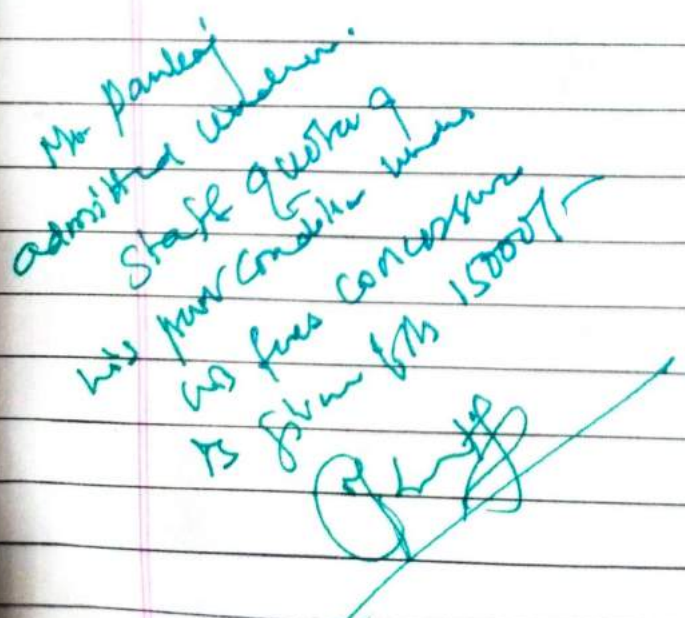 Mr Pankaj
admitted under
staff quota &
his poor condition under
his fees concession
is given Rs 15000/-